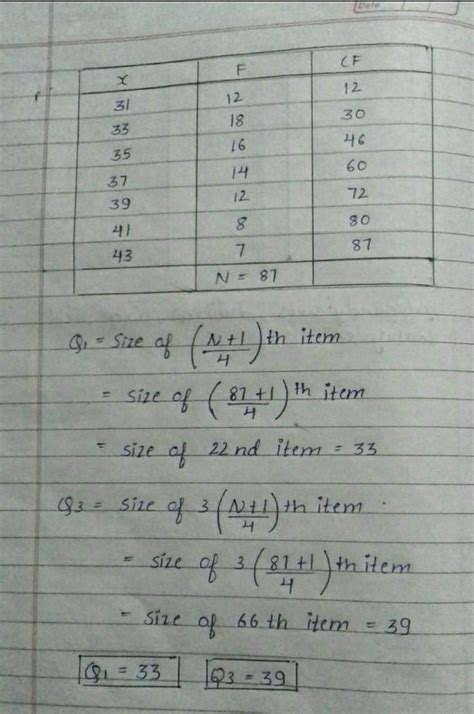 Date
x F CF
31 12 12
33 18 30
35 16 46
37 14 60
39 12 72
41 8 80
43 7 87
N = 87
Q1 = Size of (N+1/4)th item
= size of (87+1/4)th item
= size of 22nd item = 33
Q3 = size of 3(N+1/4)th item
= size of 3(87+1/4)th item
= size of 66th item = 39
Q1 = 33 Q3 = 39